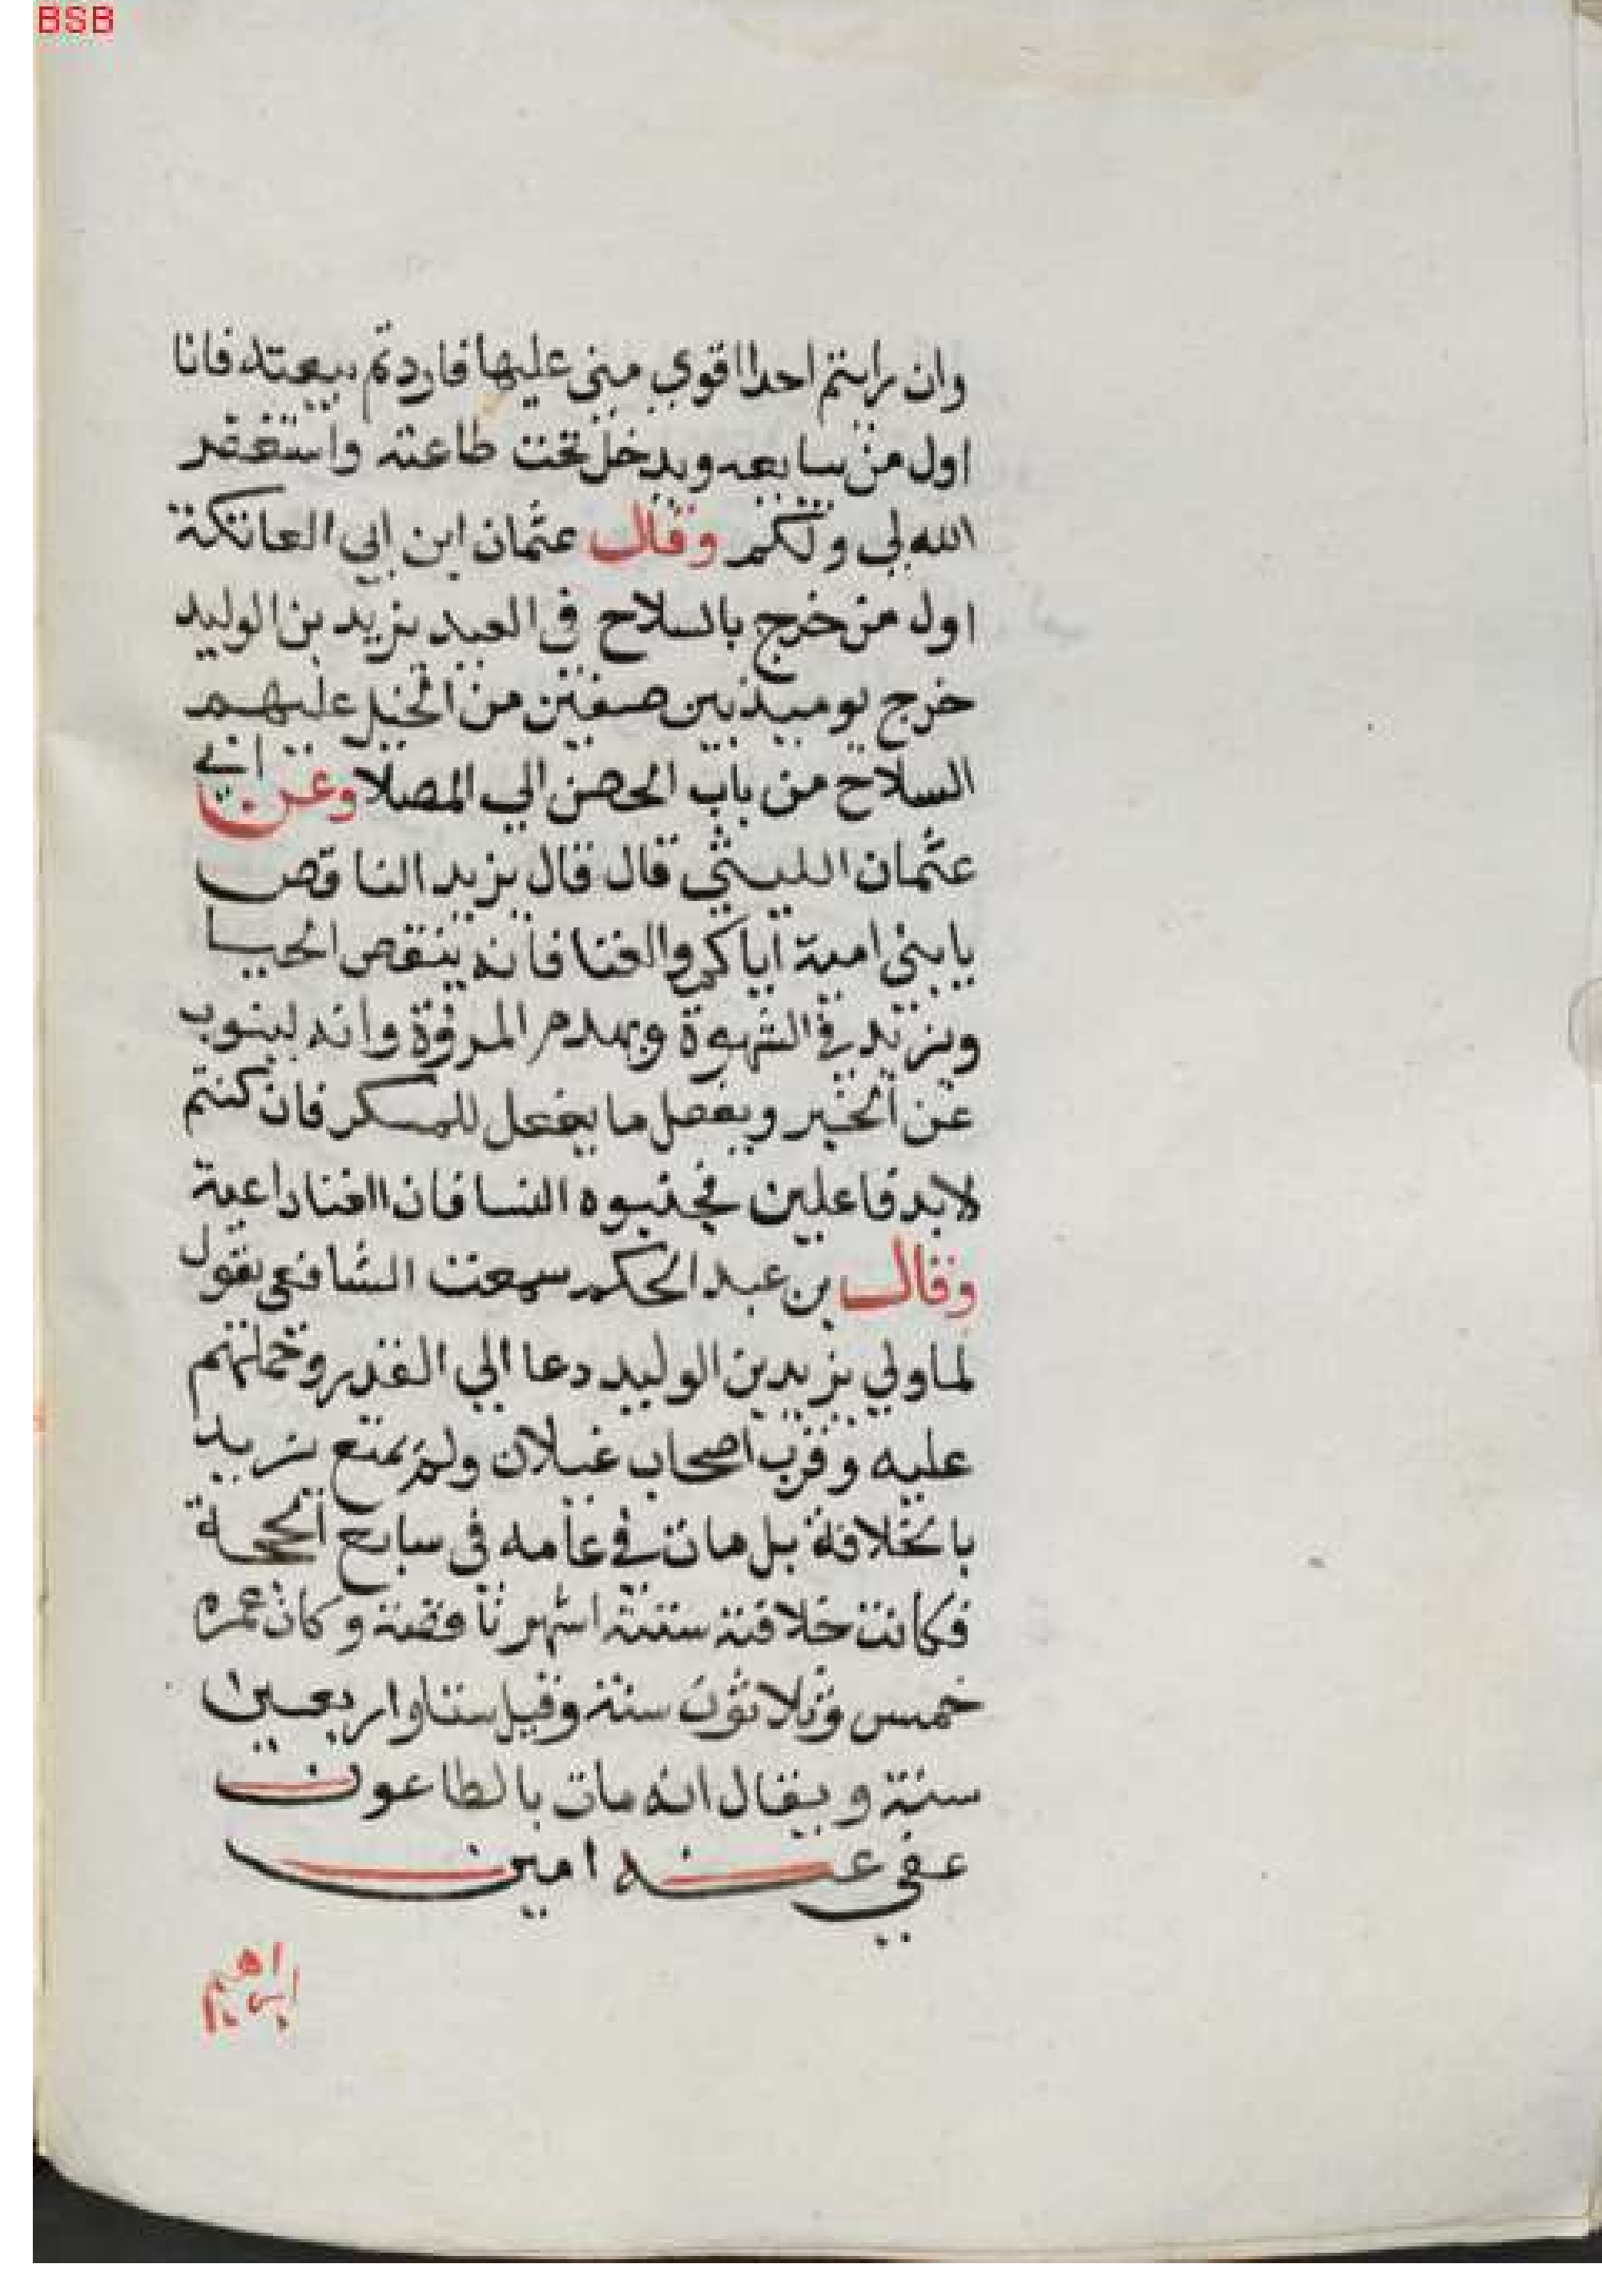 BSB
وان رايتم احدا اقوي مني عليها فاردتم بيعته فانا
اول من يبايعه ويدخل تحت طاعته واستغفر
الله لي ولكم وقال عثمان ابن ابي العاتكة
اول من خرج بالسلاح في العيد يزيد بن الوليد
خرج يوميذ بين صفين من الخيل عليهم
السلاح من باب الحصن الي المصلا وعن ابي
عثمان الليثي قال قال يزيد الناقص
يا بني امية اياكم والغنا فانه ينقص الحيا
ويزيد في الشهوة ويهدم المروة وانه لينوب
عن الخمر ويفعل ما يفعل المسكر فان كنتم
لابد فاعلين فجنبوه النسا فان الغنا داعية
وقال بن عبد الحكم سمعت الشافعي يقول
لما ولي يزيد بن الوليد دعا الي القدر وحملهم
عليه وقرب اصحاب غيلان ولم يمتع يزيد
بالخلافة بل مات في عامه في سابع الحجة
فكانت خلافته ستة اشهر ناقصة وكان عمره
خمس وثلاثون سنة وقيل ستا واربعين
سنة ويقال انه مات بالطاعون
عفي عنه امين
ابراهيم